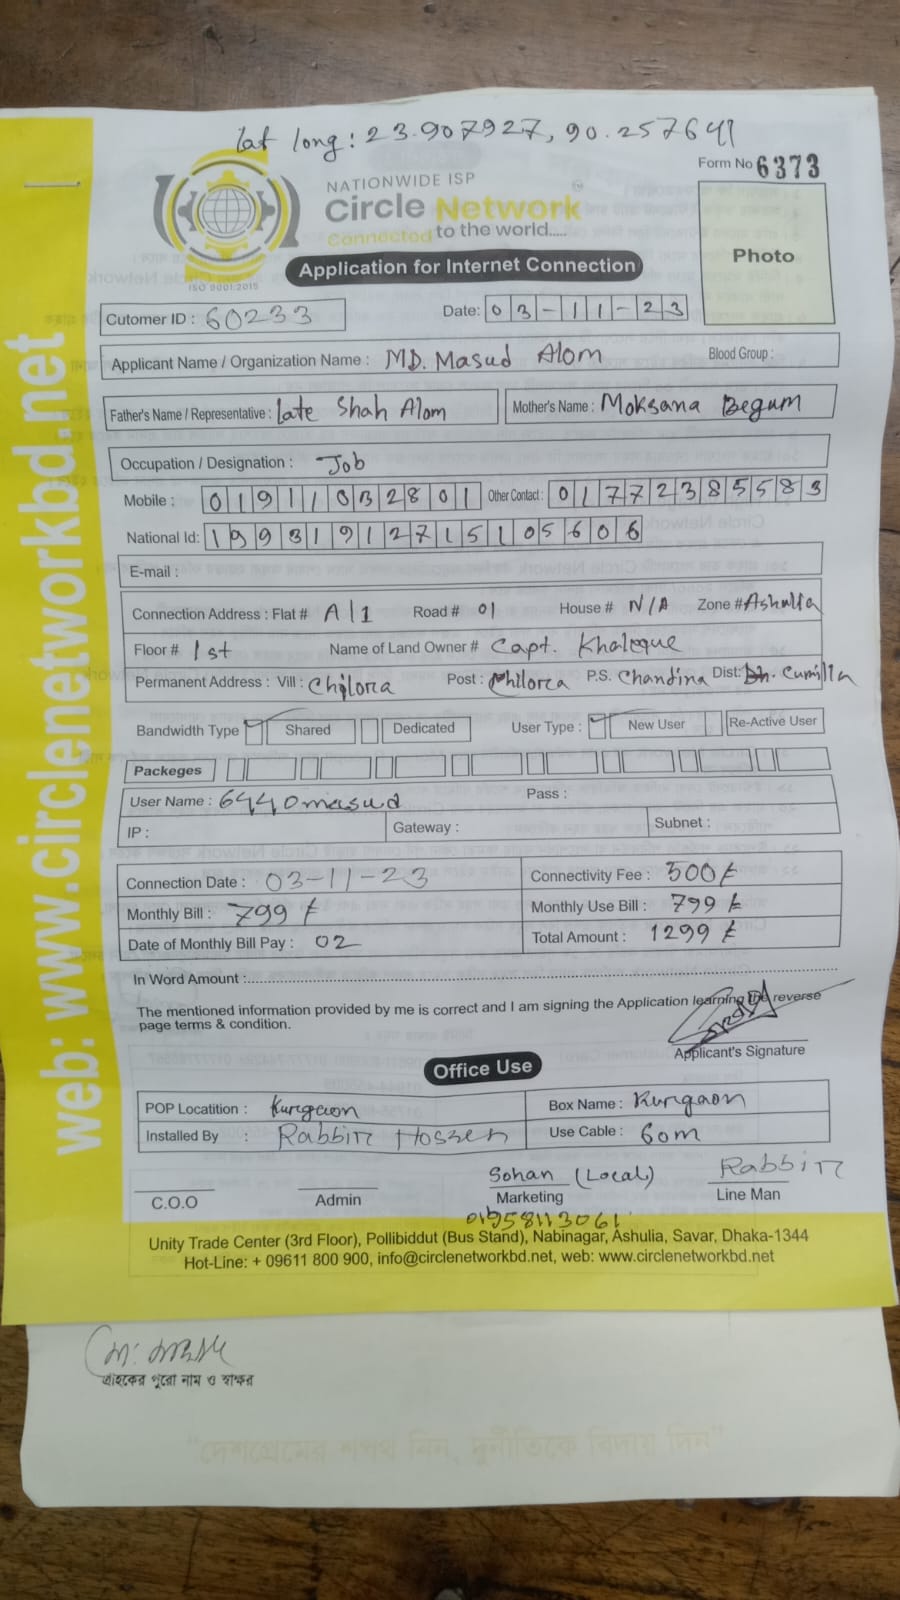 lat long: 23.907927, 90.257641
Form No 6373
NATIONWIDE ISP
Circle Network
Connected to the world.....
ISO 9001:2015
Photo
Application for Internet Connection
Cutomer ID : 60233
Date: 03-11-23
Applicant Name / Organization Name : MD. Masud Alom Blood Group :
Father's Name / Representative : Late Shah Alom Mother's Name : Moksana Begum
Occupation / Designation : Job
Mobile : 01911032801 Other Contact : 01772385583
National Id: 19931912715105606
E-mail :
Connection Address : Flat # A/1 Road # 01 House # N/A Zone # Ashulia
Floor # 1st Name of Land Owner # Capt. Khaleque
Permanent Address : Vill : Chilora Post : Chilorca P.S. Chandina Dist: Cumilla
Bandwidth Type Shared Dedicated User Type : New User Re-Active User
Packeges
User Name : 6440masud Pass :
IP : Gateway : Subnet :
Connection Date : 03-11-23 Connectivity Fee : 500 ৳
Monthly Bill : 799 ৳ Monthly Use Bill : 799 ৳
Date of Monthly Bill Pay : 02 Total Amount : 1299 ৳
In Word Amount :
The mentioned information provided by me is correct and I am signing the Application learning the reverse
page terms & condition.
Applicant's Signature
Office Use
POP Locatition : Kurgaon Box Name : Kurgaon
Installed By : Rabbir Hossen Use Cable : 60m
Sohan (Local) Rabbir
C.O.O Admin Marketing Line Man
01958113061
Unity Trade Center (3rd Floor), Pollibiddut (Bus Stand), Nabinagar, Ashulia, Savar, Dhaka-1344
Hot-Line: + 09611 800 900, info@circlenetworkbd.net, web: www.circlenetworkbd.net
web: www.circlenetworkbd.net
গ্রাহকের পুরো নাম ও স্বাক্ষর
"দেশপ্রেমের শপথ নিন, দুর্নীতিকে বিদায় দিন"